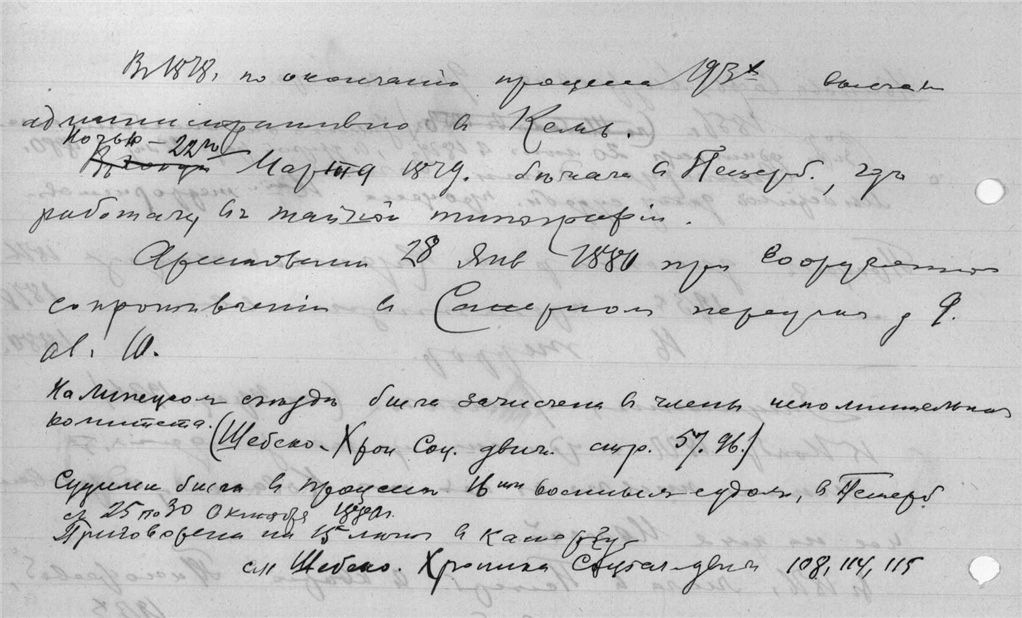 В 1878, по окончаніи процесса 193х выслана
административно в Кемь.
Ночью – 22го
Марта 1879. бѣжала в Петерб., гдѣ
работала в тайной типографіи.
Арестована 28 Янв 1880 при вооруженном
сопротивленіи в Саперном переулкѣ д 9.
кв. 10.
На Липецком съѣздѣ была зачислена в члены исполнительнаго
комитета. (Шебеко. Хрон. Соц. движ. стр. 57. 96.)
Судима была в процессѣ 16ти военным судом, в Петерб.
с 25 по 30 Октября 1880 г.
Приговорена на 15 лѣт в каторгу
см Шебеко. Хроника Соціал. движ 108, 114, 115